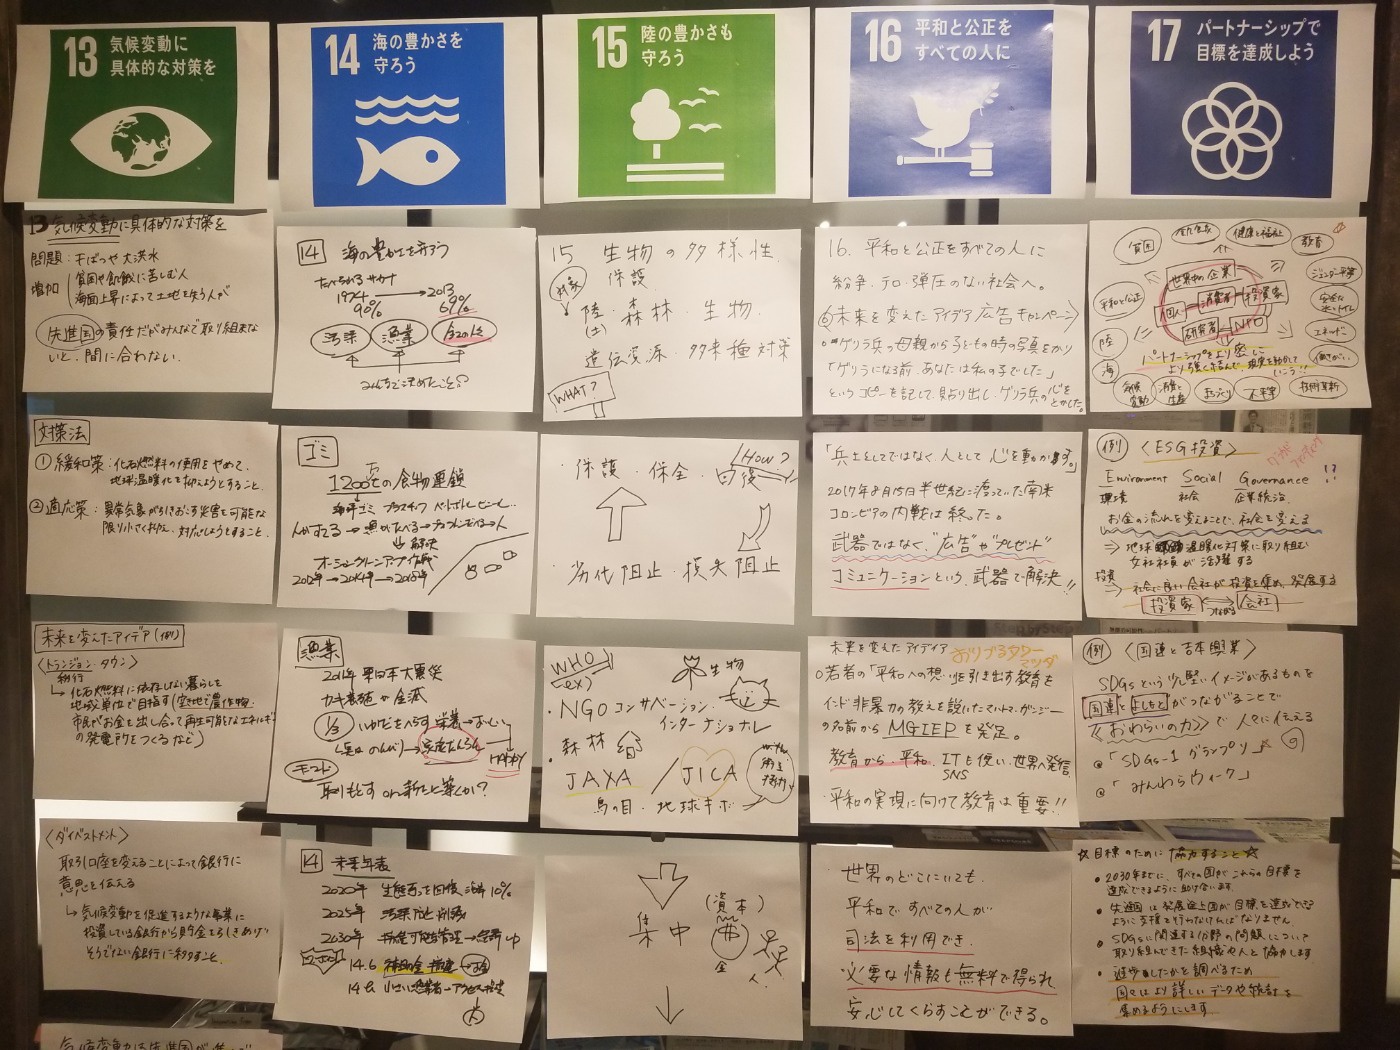 13 気候変動に
具体的な対策を
14 海の豊かさを
守ろう
15 陸の豊かさも
守ろう
16 平和と公正を
すべての人に
17 パートナーシップで
目標を達成しよう
13 気候変動に具体的な対策を
問題:干ばつや大洪水
増加 貧困や飢餓に苦しむ人
海面上昇によって土地を失う人が
先進国の責任だがみんなで取り組まな
いと、間に合わない。
対策法
①緩和策:化石燃料の使用をやめて、
地球温暖化を抑えようとすること。
②適応策:異常気象がひきおこす災害を可能な
限り小さく抑え、対応しようとすること。
未来を変えたアイデア(例)
〈トランジション・タウン〉
移行
↳化石燃料に依存しない暮らしを
地域単位で目指す(空き地で農作物、
市民でお金を出し合って再生可能なエネルギー
の発電所をつくるなど)
〈ダイベストメント〉
取引口座を変えることによって銀行に
意思を伝える
↳気候変動を促進するような事業に
投資している銀行から貯金を引きあげ
そうでない銀行に移すこと。
14 海の豊かさを守ろう
1974 → 2013
90% 69%
汚染 漁業
ゴミ
海洋ゴミ プラスチック ペットボトル ビニール…
↓解決
オーシャンクリーンアップ作戦
漁業
東日本大震災
カキ養殖が全滅
1/3
HAPPY
14 未来年表
2020年 生態系を回復 海洋10%
2025年 汚染防止 削減
2030年
14.6
15 生物の多様性
対象 保護
陸・森林・生物
(土)
遺伝資源・外来種対策
WHAT?
・保護・保全・回復 How?
・劣化阻止・損失阻止
WHO
(ex) 生物
・NGO コンサベーション
インターナショナル
森林
JAXA / JICA
鳥の目・地球ギボ
集中
(資本)
金
人
16. 平和と公正をすべての人に
紛争・テロ・弾圧のない社会へ。
◎未来を変えたアイデア 広告キャンペーン〉
ゲリラ兵の母親から子どもの時の写真をかり
「ゲリラになる前、あなたは私の子でした」
というコピーを記して、貼り出し、ゲリラ兵の心を
とかした。
「兵士としてではなく、人として心を動かす。」
2017年8月15日半世紀に渡っていた南米
コロンビアの内戦は終った。
武器ではなく、“広告”や“プレゼント”
コミュニケーションという、武器で解決!!
未来を変えたアイディア おりづるタワー
○若者の「平和への想い」を引き出す教育を
インド非暴力の教えを説いたマハトマ・ガンジー
の名前からMGIEPを発足。
教育から、平和、ITを使い、世界へ発信
SNS
・平和の実現に向けて教育は重要!!
世界のどこにいても、
平和ですべての人が
司法を利用でき、
必要な情報も無料で得られ
安心してくらすことができる。
貧困
健康と福祉
教育
ジェンダー平等
安全な水とトイレ
エネルギー
働きがい
技術革新
不平等
まちづくり
消費と生産
気候変動
海
陸
平和と公正
世界中の企業
個人 消費者 投資家
研究者 NPO
パートナーシップをより密に
より強く結んで、現実を動かして
いこう!!
例 〈ESG投資〉
Environment Social Governance !?
環境 社会 企業統治
お金の流れを変えることで、社会を変える
⇒地球温暖化対策に取り組む
女性社員が活躍する
投資
→社会に良い会社が投資を集め、発展する
投資家 つながる 会社
例 〈国連と吉本興業〉
SDGsという少し堅いイメージがあるものを
国連とよしもとがつながることで
《おわらいの力》で人々に伝える
@「SDGs-1グランプリ」
@「みんわらウィーク」
☆目標のために協力すること☆
• 2030年までに、すべての国がこれらの目標を
達成できるように助け合います。
• 先進国は発展途上国が目標を達成できる
ように支援を行わなければなりません。
• SDGsに関連する分野の問題について
取り組んできた組織や人と協力します
• 進歩したかを調べるため
国々はより詳しいデータや統計を
集めるようにします